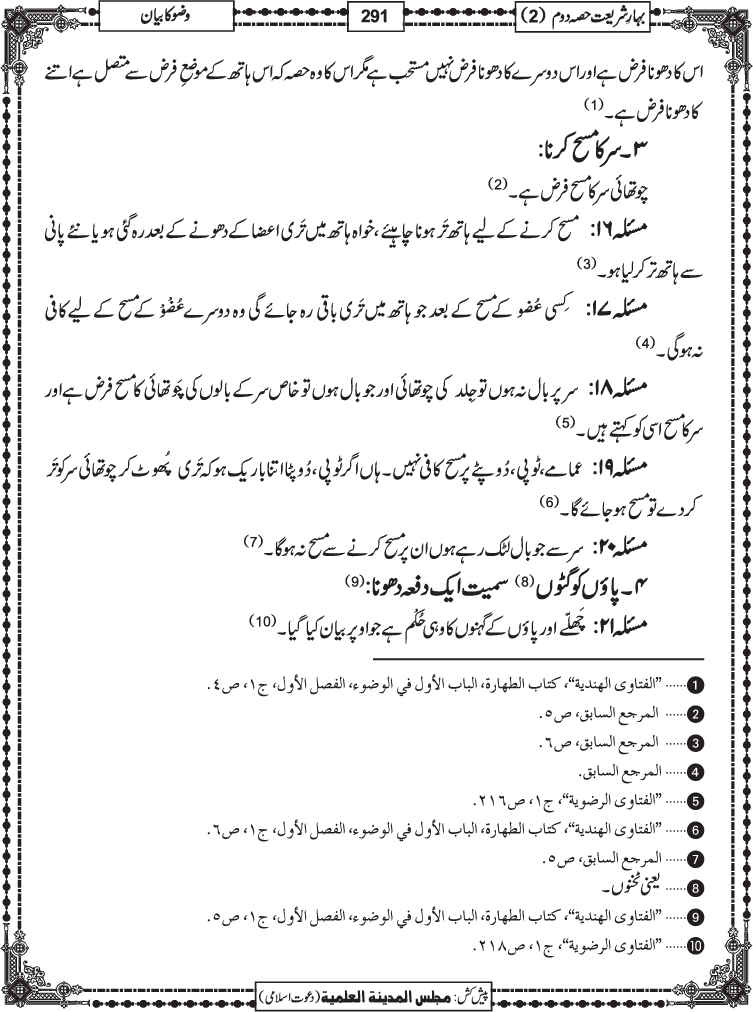 بہارِ شریعت حصہ دوم (2)
291
وضو کا بیان
اس کا دھونا فرض ہے اور اس دوسرے کا دھونا فرض نہیں مستحب ہے مگر اس کا وہ حصہ کہ اس ہاتھ کے موضعِ فرض سے متصل ہے اتنے
کا دھونا فرض ہے۔ (1)
۳۔ سر کا مسح کرنا:
چوتھائی سر کا مسح فرض ہے۔ (2)
مسئلہ ۱۶: مسح کرنے کے لیے ہاتھ تَر ہونا چاہیئے، خواہ ہاتھ میں تَری اعضا کے دھونے کے بعد رہ گئی ہو یا نئے پانی
سے ہاتھ تر کر لیا ہو۔ (3)
مسئلہ ۱۷: کِسی عُضو کے مسح کے بعد جو ہاتھ میں تَری باقی رہ جائے گی وہ دوسرے عُضْوْ کے مسح کے لیے کافی
نہ ہوگی۔ (4)
مسئلہ ۱۸: سر پر بال نہ ہوں تو جِلد کی چوتھائی اور جو بال ہوں تو خاص سر کے بالوں کی چَوتھائی کا مسح فرض ہے اور
سر کا مسح اسی کو کہتے ہیں۔ (5)
مسئلہ ۱۹: عمامے، ٹوپی، دُوپٹے پر مسح کافی نہیں۔ ہاں اگر ٹوپی، دُوپٹا اتنا باریک ہو کہ تَری پُھوٹ کر چوتھائی سر کو تَر
کر دے تو مسح ہو جائے گا۔ (6)
مسئلہ ۲۰: سر سے جو بال لٹک رہے ہوں ان پر مسح کرنے سے مسح نہ ہوگا۔ (7)
۴۔ پاؤں کو گٹّوں (8) سمیت ایک دفعہ دھونا: (9)
مسئلہ ۲۱: چَھلّے اور پاؤں کے گہنوں کا وہی حُکْم ہے جو اوپر بیان کیا گیا۔ (10)
1 ...... ”الفتاوی الهندية“، كتاب الطهارة، الباب الأول في الوضوء، الفصل الأول، ج١، ص٤.
2 ...... المرجع السابق، ص٥.
3 ...... المرجع السابق، ص٦.
4 ...... المرجع السابق.
5 ...... ”الفتاوی الرضوية“، ج١، ص٢١٦.
6 ...... ”الفتاوی الهندية“، كتاب الطهارة، الباب الأول في الوضوء، الفصل الأول، ج١، ص٦.
7 ...... المرجع السابق، ص٥.
8 ...... یعنی ٹخنوں۔
9 ...... ”الفتاوی الهندية“، كتاب الطهارة، الباب الأول في الوضوء، الفصل الأول، ج١، ص٥.
10 ...... ”الفتاوی الرضوية“، ج١، ص٢١٨.
پیش کش: مجلس المدينة العلمية (دعوت اسلامی)